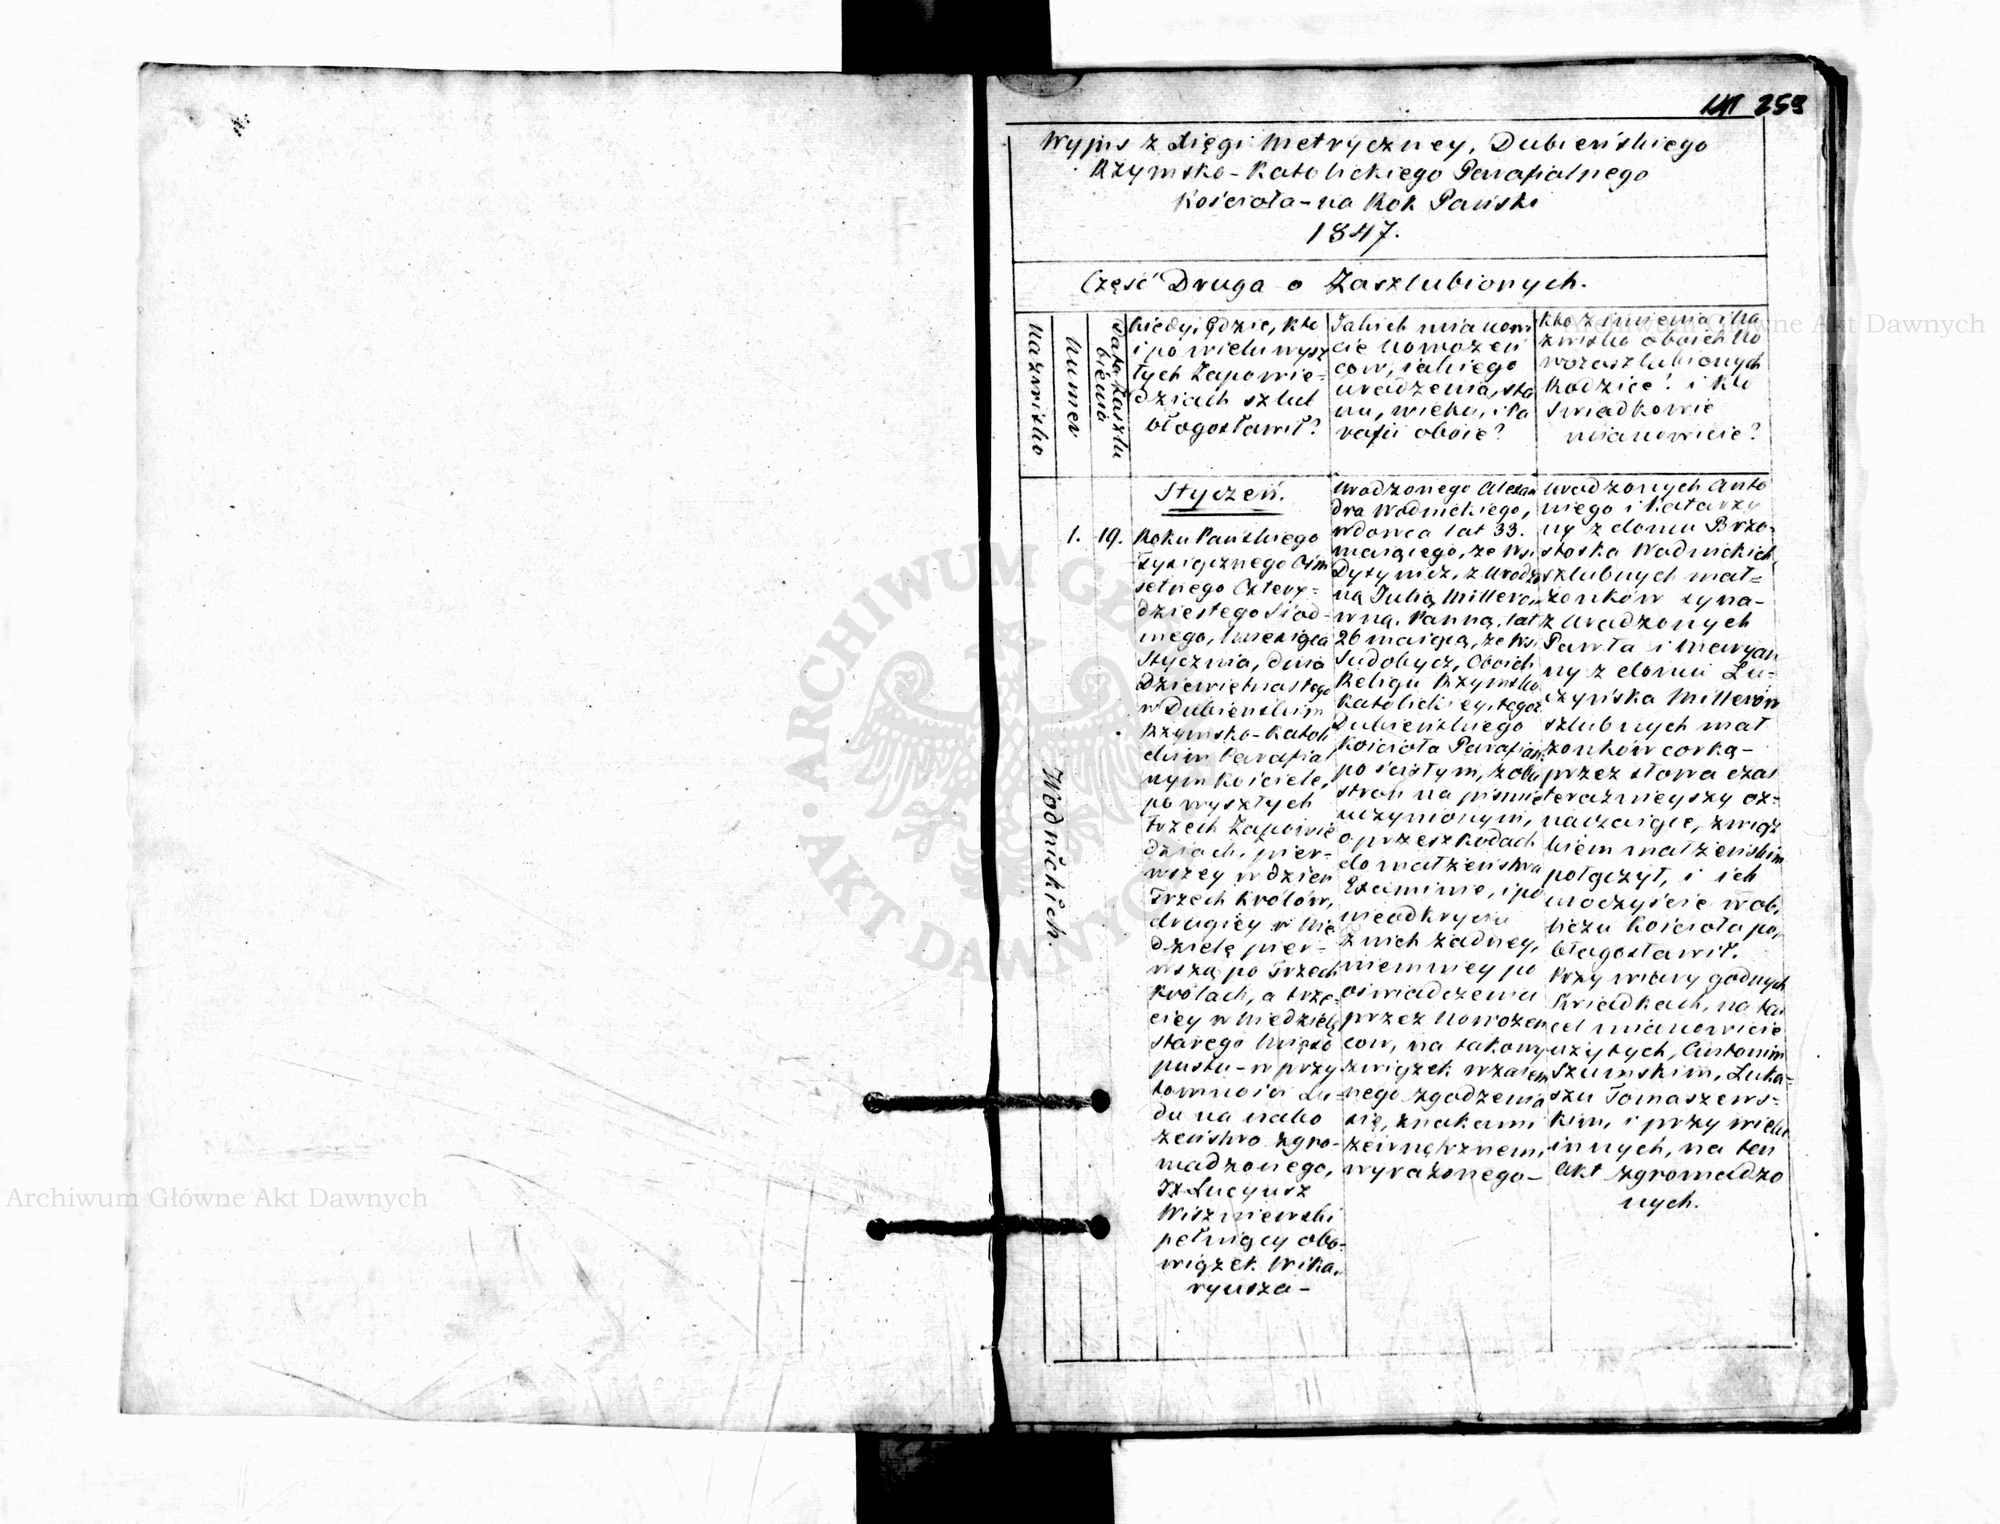 259
Wypis z Xięgi Metryczney, Dubieńskiego
Rzymsko-Katolickiego Parafialnego
Kościoła - na Rok Pański
1847.
Część Druga o Zaszlubionych.
Nazwisko
Numer
Data Zaszlu
bienia
Kiedy, Gdzie, kto
i po wielu wysz
łych Zapowie=
dziach szlub
błogosławił?
Jakich mianowi
cie Nowożeń
cow, iakiego
urodzenia, sta
nu, wieku, i Pa
rafii oboie?
Kto z imienia i na
zwiska oboich No
wozaszlubionych
Rodzice? i kto
Swiadkowie
mianowicie?
Wodnickich.
1.
19.
Styczeń.
Roku Pańskiego
Tysiącznego Ośm
setnego Cztery=
dziestego Siód-
mego, Miesiąca
Stycznia, dnia
Dziewiętnastego
w Dubieńskim
Rzymsko-Katoli
ckim Parafial
nym Kościele,
po wyszłych
trzech Zapowie
dziach, pier-
wszey w dzień
Trzech Królów,
drugiey w Nie
dzielę pier-
wszą po Trzech
Królach, a trze-
ciey w Niedzielę
starego Mięso
pustu - w przy
tomności Lu-
du na nabo
żeństwo zgro-
madzonego,
JX Lucyusz
Wiszniewski
pełniący obo-
wiązek Wika,
ryusza -
Urodzonego Alexan
dra Wodnickiego,
wdowca lat 33.
maiącego, ze wsi
z Urodzo
ną Julią Millerow
wną, Panną, lat
26 maiącą, ze wsi
Sudobycz, Oboich
Religii Rzymsko
Katolickiey, tegoż
Dubieńskiego
Kościoła Parafian,
po ścisłym, z obu
stron na piśmie
uczynionym,
o przeszkodach
do małżeństwa
Examinie, i po
nieodkryciu
z nich żadney,
niemniey po
oświadczeniu
przez Nowożeń
cow, na takowy
związek wzaiem
nego zgodzenia
się, znakami
zewnętrznemi
wyrażonego -
Urodzonych Anto
niego i Katarzy
ny z domu Brzo-
stoska Wodnickich,
szlubnych mał=
żonków syna-
z Urodzonych
Pawła i Maryan
ny z domu Łu-
czyńska Millerów
szlubnych mał
żonków corką -
przez słowa czas
teraźnieyszy oz-
naczaiące, związ
kiem małżeńskim
połączył, i ich
uroczyście w ob,
liczu Kościoła po,
błogosławił.
Przy wiary godnych
Świadkach, na ten
cel mianowicie
użytych, Antonim
Szumskim, Łuka-
szu Tomaszews-
kim, i przy wielu
innych, na ten
Akt zgromadzo
nych.
ARCHIWUM GŁÓWNE
AKT DAWNYCH
Archiwum Główne Akt Dawnych
Archiwum Główne Akt Dawnych